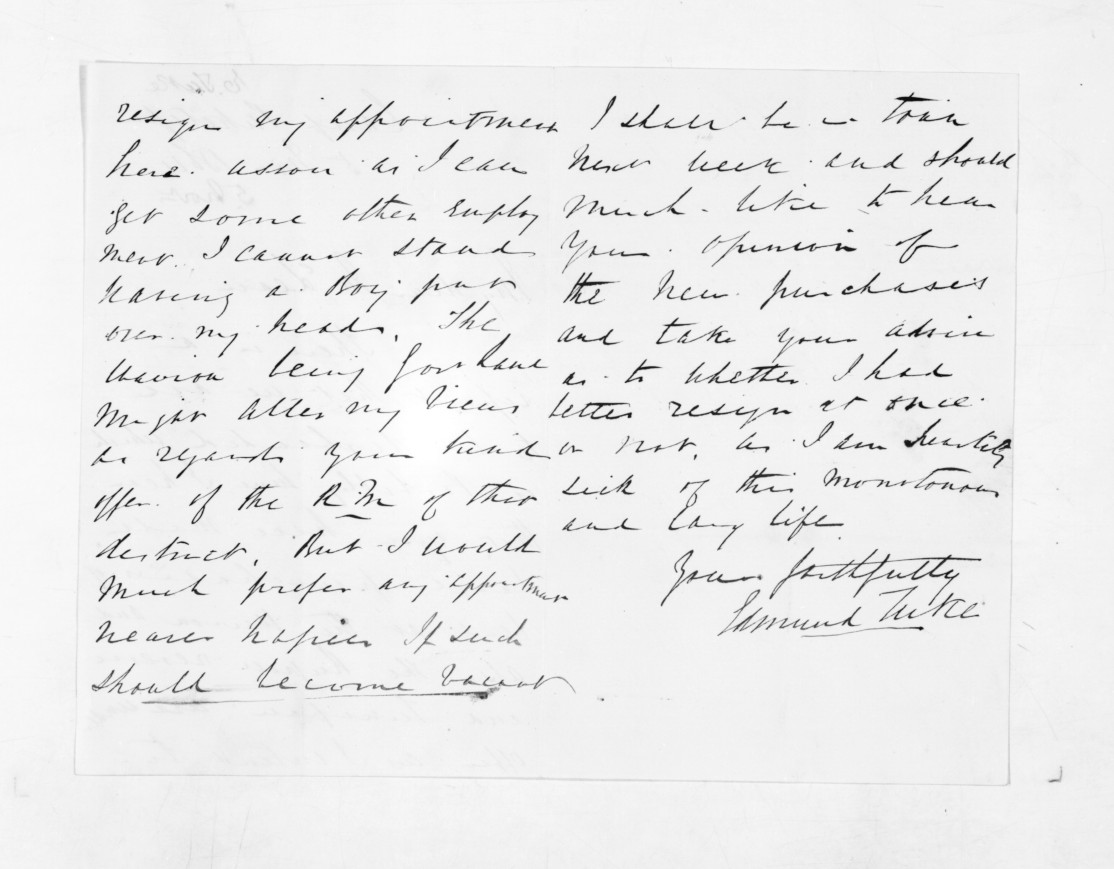 resign my appointment
here assoon as I can
get some other employ
ment. I cannot stand
having a Boy put
over my heads. The
being Gov land
might alter my views
as regards your kind
offer of the R.M of this
district. But I would
much prefer any appointment
nearer Napier If such
should become vacant
I shall be in town
next week and should
much like to hear
your opinion of
the new purchases
and take your advice
as to whether I had
better resign at once
or not, as I am heartily
sick of this monotonous
and lazy life
Yours faithfully
Edmund Tuke